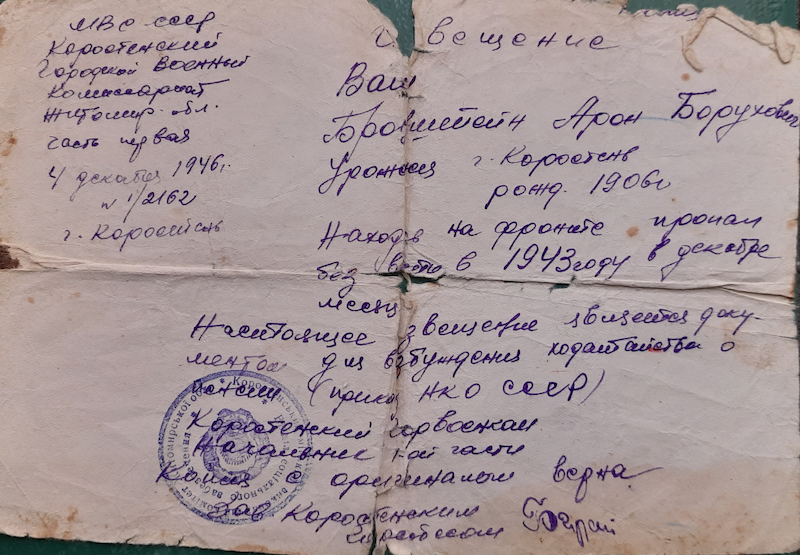 МВС СССР
Коростенский
Городской Военный
Комиссариат
Житомир. обл.
часть первая
4 декабря 1946г.
N 1/2162
г. Коростень
Извещение
Ваш
Бронштейн Арон Борухович
Урожен г. Коростень
рожд. 1906г
Находясь на фронте пропал
без вести в 1943 году в декабре
месяце
Настоящее извещение является доку-
ментом для возбуждения ходатайства о
пенсии (приказ НКО СССР)
Коростенский Горвоенком
Начальник 1-ой части
Копия с оригиналом верна
Зав Коростенским